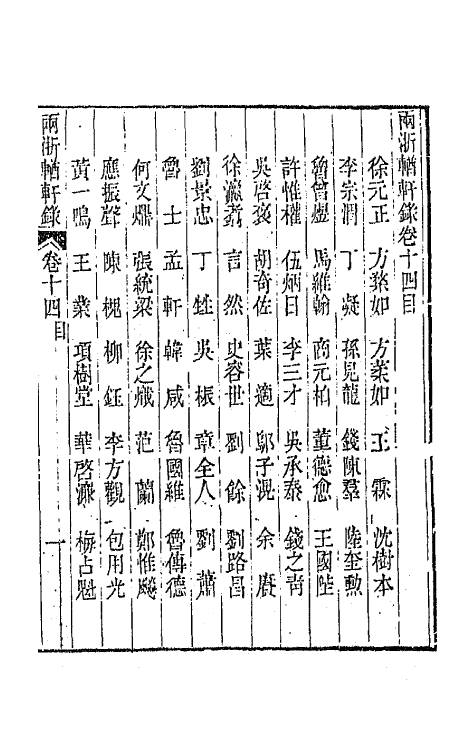 兩浙輶軒錄卷十四目
徐元正 方棻如 方葇如 王霖 沈樹本
李宗潤 丁凝 孫見龍 錢陳羣 陸奎勲
魯曾煜 馬維翰 商元柏 董德愈 王國陛
許惟權 伍炳日 李三才 吳承泰 錢之青
吳啓褒 胡奇佐 葉適 鄔子淀 余賡
徐瀛翥 言然 史容世 劉餘 劉路昌
劉景忠 丁甡 吳棖 章全人 劉蕭
魯士 孟軒 韓咸 魯國維 魯傳德
何文爝 張統梁 徐之 范蘭 鄭惟飈
應振聲 陳槐 柳鈺 李方觀 包用光
黃一鳴 王棻 項樹堂 華啓濂 梅占魁
兩浙輶軒錄 卷十四目 一